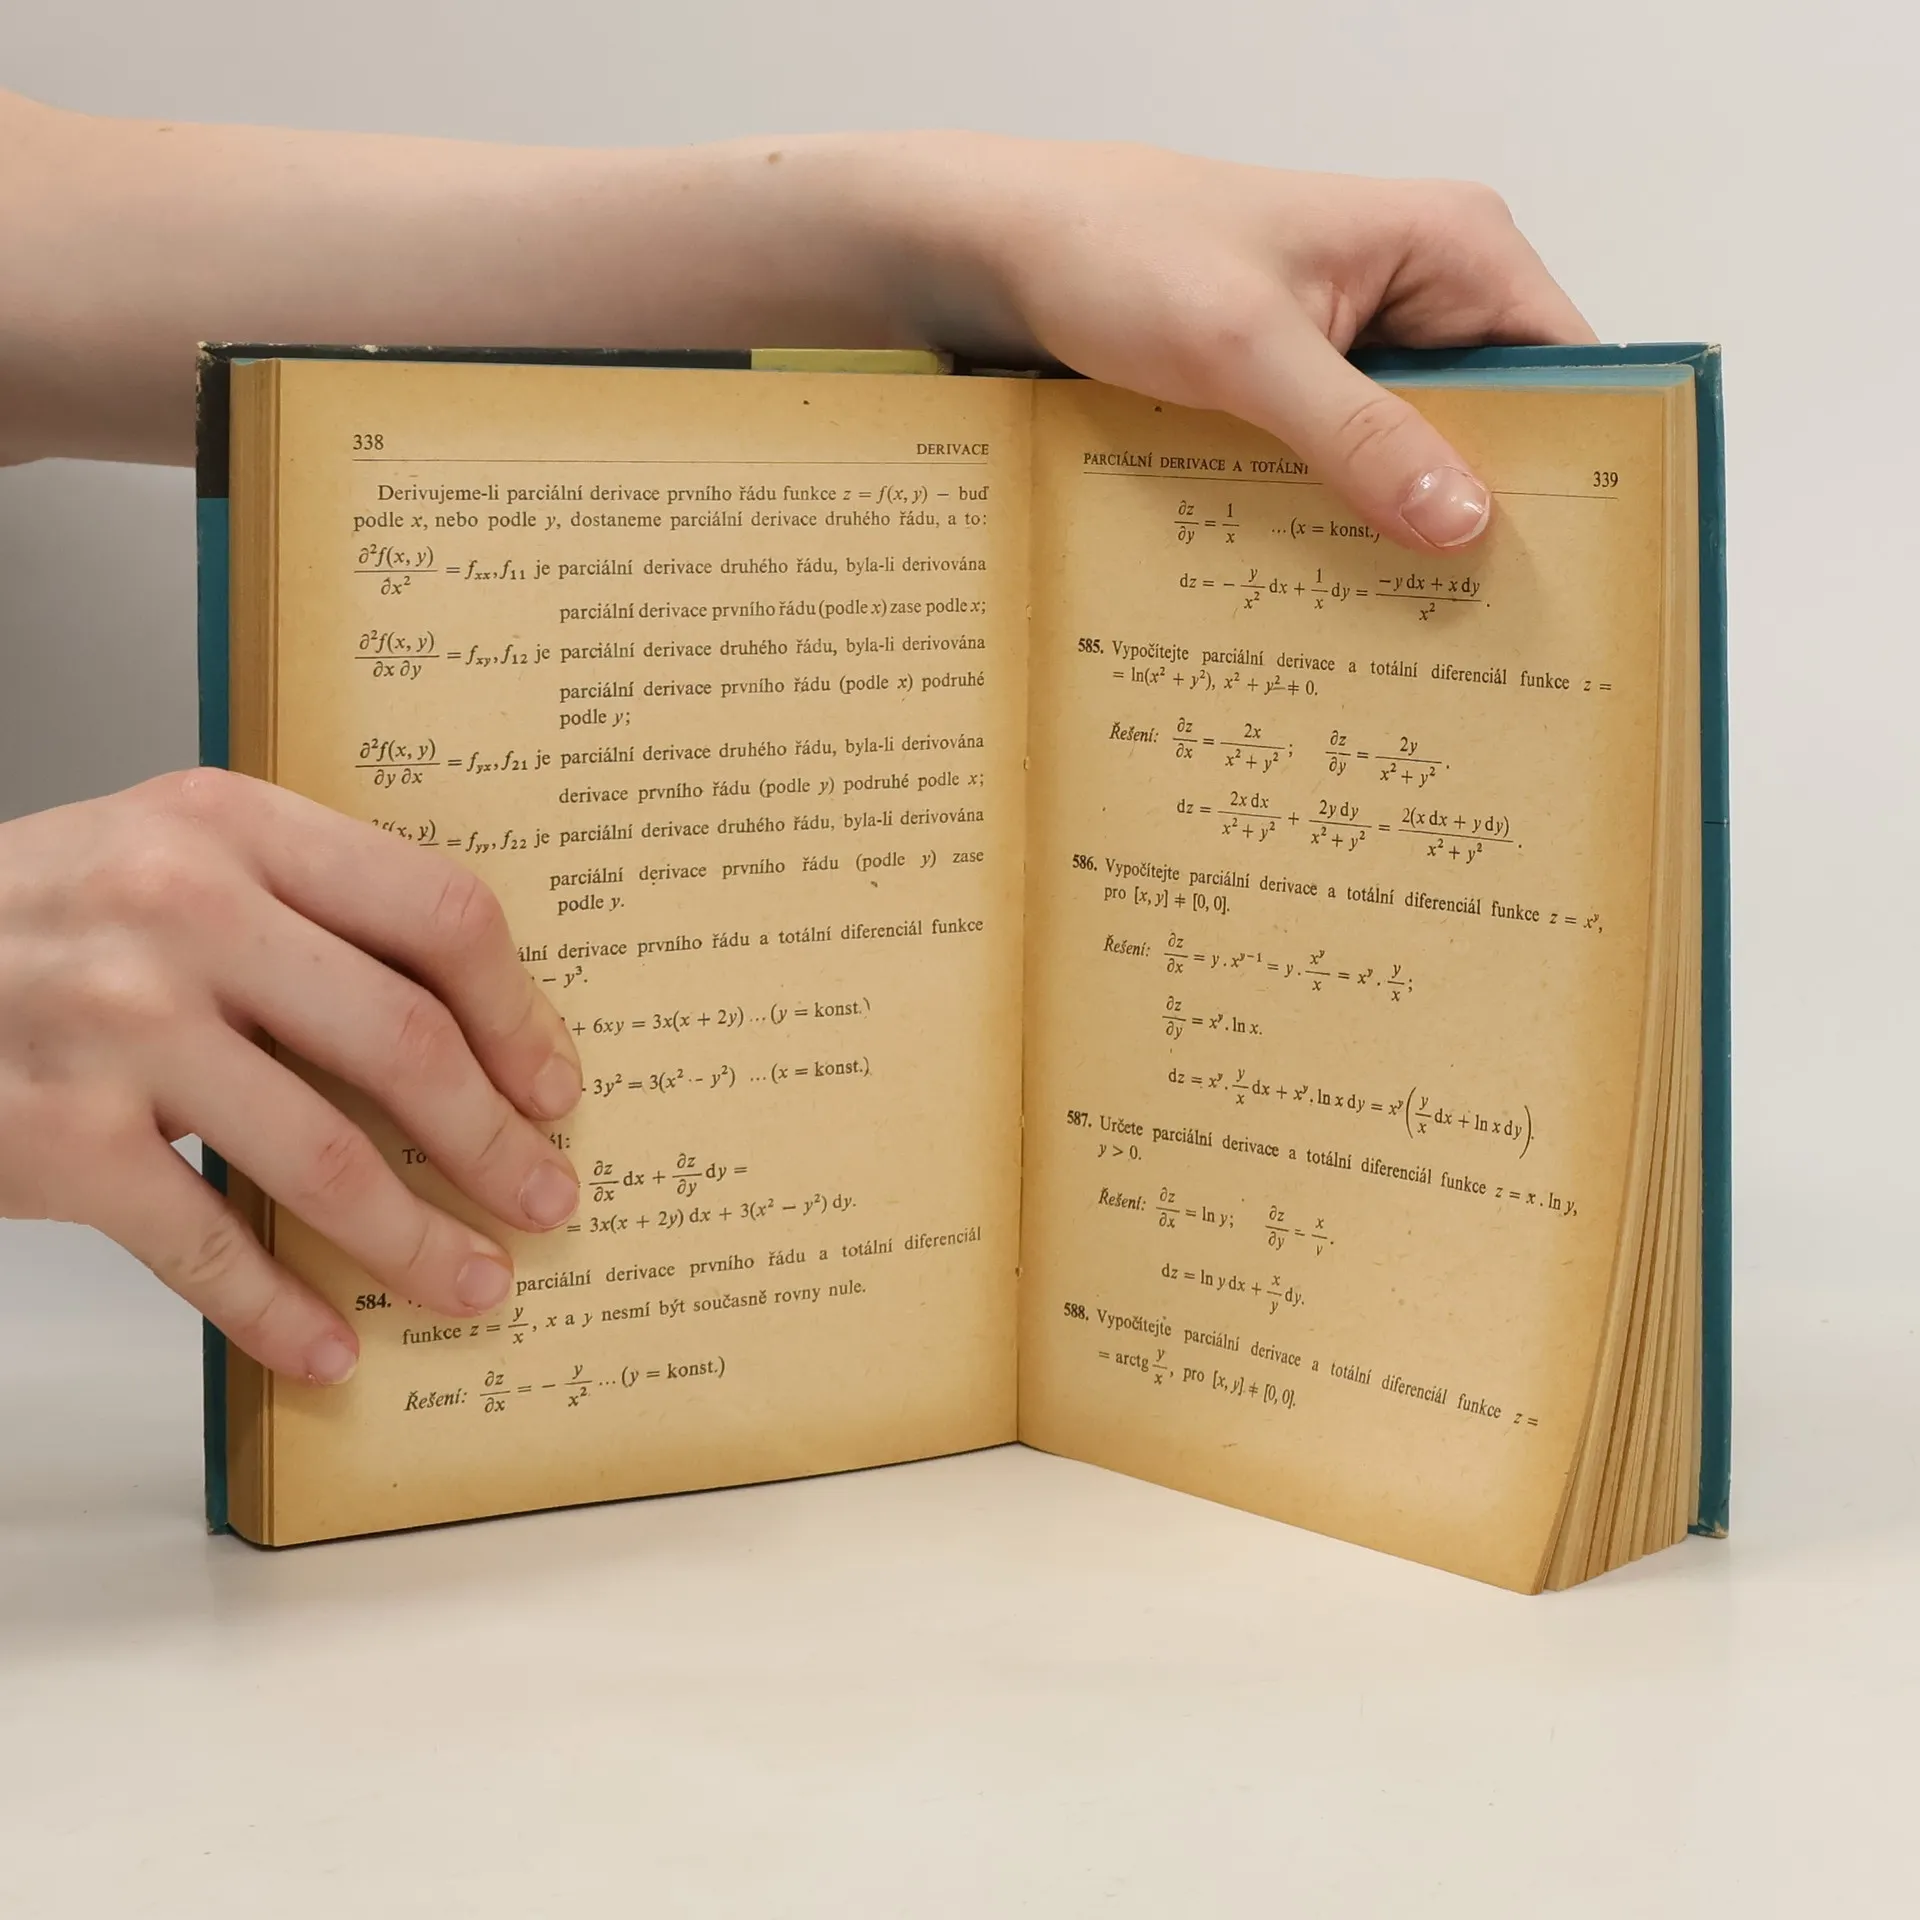 338 DERIVACE
Derivujeme-li parciální derivace prvního řádu funkce z = f(x, y) – buď
podle x, nebo podle y, dostaneme parciální derivace druhého řádu, a to:
∂²f(x, y)/∂x² = fₓₓ, f₁₁ je parciální derivace druhého řádu, byla-li derivována
parciální derivace prvního řádu (podle x) zase podle x;
∂²f(x, y)/∂x ∂y = f_xy, f₁₂ je parciální derivace druhého řádu, byla-li derivována
parciální derivace prvního řádu (podle x) podruhé
podle y;
∂²f(x, y)/∂y ∂x = f_yx, f₂₁ je parciální derivace druhého řádu, byla-li derivována
derivace prvního řádu (podle y) podruhé podle x;
(x, y) = f_yy, f₂₂ je parciální derivace druhého řádu, byla-li derivována
parciální derivace prvního řádu (podle y) zase
podle y.
derivace prvního řádu a totální diferenciál funkce
– y³.
+ 6xy = 3x(x + 2y) ... (y = konst.)
3y² = 3(x² – y²) ... (x = konst.)
∂z/∂x dx + ∂z/∂y dy =
= 3x(x + 2y) dx + 3(x² – y²) dy.
584. parciální derivace prvního řádu a totální diferenciál
funkce z = y/x, x a y nesmí být současně rovny nule.
Řešení: ∂z/∂x = – y/x² ... (y = konst.)
PARCIÁLNÍ DERIVACE A 339
∂z/∂y = 1/x ... (x = konst.)
dz = – y/x² dx + 1/x dy = (–y dx + x dy)/x².
585. Vypočítejte parciální derivace a totální diferenciál funkce z =
= ln(x² + y²), x² + y² ≠ 0.
Řešení: ∂z/∂x = 2x/(x² + y²); ∂z/∂y = 2y/(x² + y²).
dz = 2x dx/(x² + y²) + 2y dy/(x² + y²) = 2(x dx + y dy)/(x² + y²).
586. Vypočítejte parciální derivace a totální diferenciál funkce z = x^y,
pro [x, y] ≠ [0, 0].
Řešení: ∂z/∂x = y . x^(y–1) = y . x^y/x = x^y . y/x;
∂z/∂y = x^y . ln x.
dz = x^y . y/x dx + x^y . ln x dy = x^y (y/x dx + ln x dy).
587. Určete parciální derivace a totální diferenciál funkce z = x . ln y,
y > 0.
Řešení: ∂z/∂x = ln y; ∂z/∂y = x/y.
dz = ln y dx + x/y dy.
588. Vypočítejte parciální derivace a totální diferenciál funkce z =
= arctg y/x, pro [x, y] ≠ [0, 0].